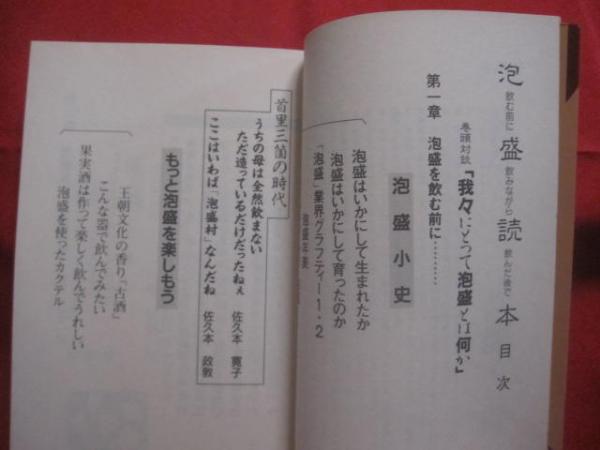 泡盛読本 目次
飲む前に 飲みながら 飲んだ後で
巻頭対談「我々にとって泡盛とは何か」
第一章 泡盛を飲む前に………
泡盛小史
泡盛はいかにして生まれたか
泡盛はいかにして育ったのか
「泡盛」業界グラフティー1・2
首里三箇の時代
うちの母は全然飲まない
ただ造っているだけだったねぇ 佐久本 寛子
ここはいわば「泡盛村」なんだね 佐久本 政敦
もっと泡盛を楽しもう
王朝文化の香り「古酒」
こんな器で飲んでみたい
果実酒は作って楽しく飲んでうれしい
泡盛を使ったカクテル